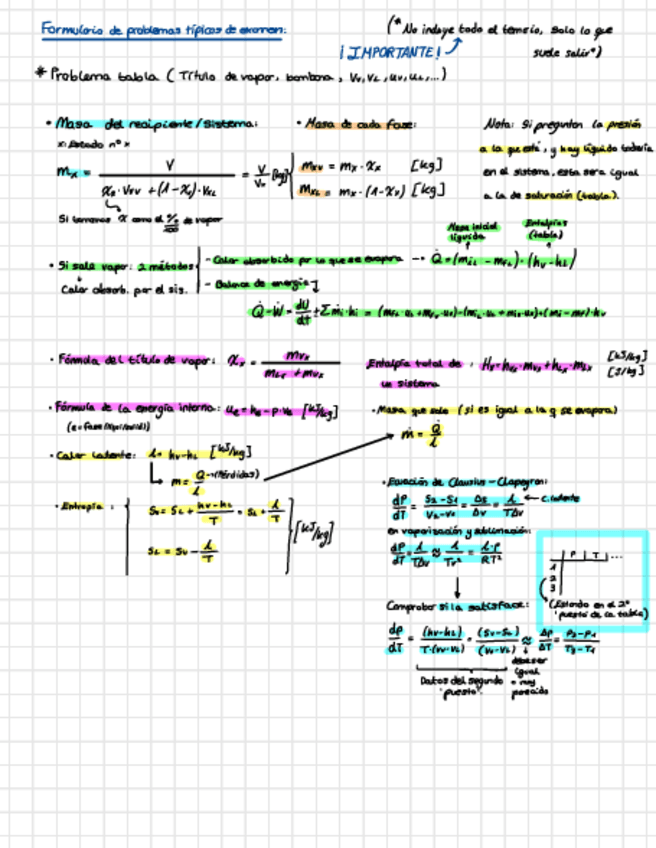 Formulario de problemas típicos de examen:
(* No incluye todo el temario, solo lo que
suele salir*)
¡IMPORTANTE!
* Problema tabla (Título de vapor, bombona, Vv, VL, uv, uL, ...)
• Masa del recipiente/Sistema:
x: Estado nº x
mx = V / (Xx · Vvx + (1-Xx) · VLx) = V/Vx [kg]
Si tomamos X como el % de vapor
• Masa de cada fase:
mxv = mx · Xx [kg]
mxL = mx · (1-Xx) [kg]
Nota: Si preguntan la presión
a la que está, y hay líquido todavía
en el sistema, esta sera igual
a la de saturación (tabla).
• Si sale vapor: 2 métodos
Calor absorb. por el sis.
- Calor absorbido por lo que se evapora → Q̇ = (miL - mfL) · (hv - hL)
Masa inicial líquida
Entalpías (tabla)
- Balance de energía
Q̇ - Ẇ = dU/dt + Σ ṁi · hi
• Fórmula del título de vapor: Xx = mvx / (mLx + mvx)
Entalpía total de un sistema: Hx = hvx · mvx + hLx · mLx [kJ/kg] [J/kg]
• Fórmula de la energía interna: ue = he - p · ve [kJ/kg]
• Masa que sale (si es igual a la q se evapora)
ṁ = Q̇/L
• Calor latente: L = hv - hL [kJ/kg]
m = Q → (Pérdidas) / L
• Entropía:
Sv = SL + (hv - hL)/T = SL + L/T
SL = Sv - L/T
[kJ/kg]
• Ecuación de Clausius-Clapeyron:
dP/dT = (S2 - S1)/(V2 - V1) = Δs/Δv = L/(TΔv) ← C. latente
en vaporización y sublimación:
dP/dT = L/(TΔv) ≈ L/(Tv²) = (L · P)/(RT²)
P T ...
1
2
3
(Estando en el 2º
"puesto de la tabla)
Comprobar si la satisface:
dp/dT = (hv - hL)/(T · (vv - vL)) = (Sv - SL)/(Vv - VL) ≈ Δp/ΔT = (P3 - P1)/(T3 - T1)
debe ser
igual
o muy
parecido
Datos del segundo
"puesto".